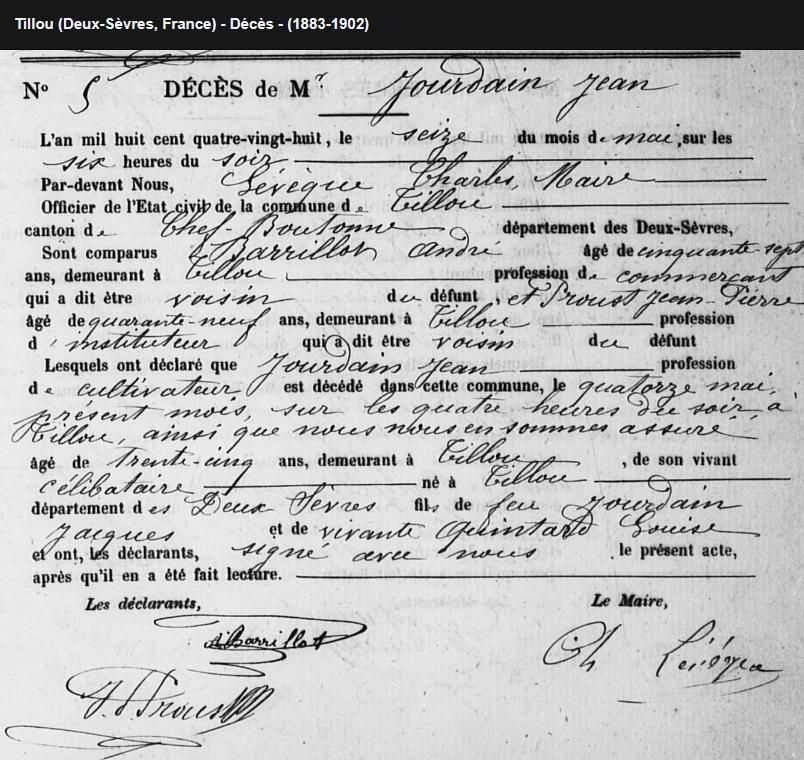 Tillou (Deux-Sèvres, France) - Décès - (1883-1902)
N° 5 DÉCÈS de Mr Jourdain Jean
L'an mil huit cent quatre-vingt-huit, le seize du mois de mai, sur les
six heures du soir
Par-devant Nous, Lévêque Charles, Maire
Officier de l'Etat civil de la commune de Tillou
canton de Chef-Boutonne département des Deux-Sèvres,
Sont comparus Barrillot André âgé de cinquante-sept
ans, demeurant à Tillou profession de commerçant
qui a dit être voisin du défunt, et Proust Jean-Pierre
âgé de quarante-neuf ans, demeurant à Tillou profession
d'instituteur qui a dit être voisin du défunt
Lesquels ont déclaré que Jourdain Jean profession
de cultivateur est décédé dans cette commune, le quatorze mai,
présent mois, sur les quatre heures du soir à
Tillou, ainsi que nous nous en sommes assuré
âgé de trente-cinq ans, demeurant à Tillou, de son vivant
célibataire né à Tillou
département des Deux Sèvres fils de feu Jourdain
Jacques et de vivante Quintard Louise
et ont, les déclarants, signé avec nous le présent acte,
après qu'il en a été fait lecture.
Les déclarants, Le Maire,
A Barrillot
Ch Lévêque
J. P. Proust